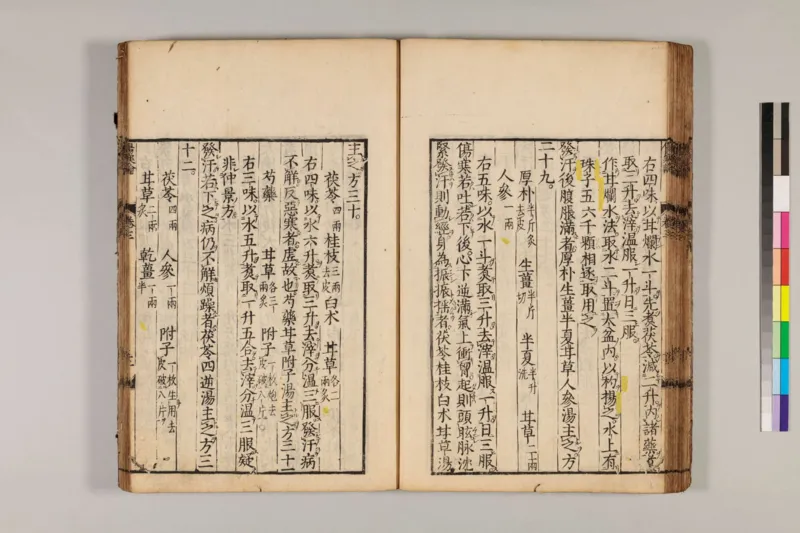 右四味以甘爛水一斗先煮茯苓減二升內諸藥煮
取三升去滓溫服一升日三服
作甘爛水法取水二斗置大盆內以杓揚之水上有
珠子五六千顆相逐取用之
發汗後腹脹滿者厚朴生薑半夏甘草人參湯主之方
二十九。
厚朴半斤炙去皮 生薑半斤切 半夏半升洗 甘草二兩
人參一兩
右五味以水一斗煮取三升去滓溫服一升日三服
傷寒若吐若下後心下逆滿氣上衝胷起則頭眩脉沈
緊發汗則動經身為振振揺者茯苓桂枝白朮甘草湯
主之方三十。
茯苓四兩 桂枝三兩去皮 白朮 甘草各二兩炙
右四味以水六升煮取三升去滓分溫三服發汗病
不解反惡寒者虛故也芍藥甘草附子湯主之方三十一
芍藥 甘草各三兩炙 附子一枚炮去皮破八片
右三味以水五升煮取一升五合去滓分溫三服疑
非仲景方
發汗若下之病仍不解煩躁者茯苓四逆湯主之方三
十二。
茯苓四兩 人參一兩 附子一枚生用去皮破八片
甘草二兩炙 乾薑一兩半